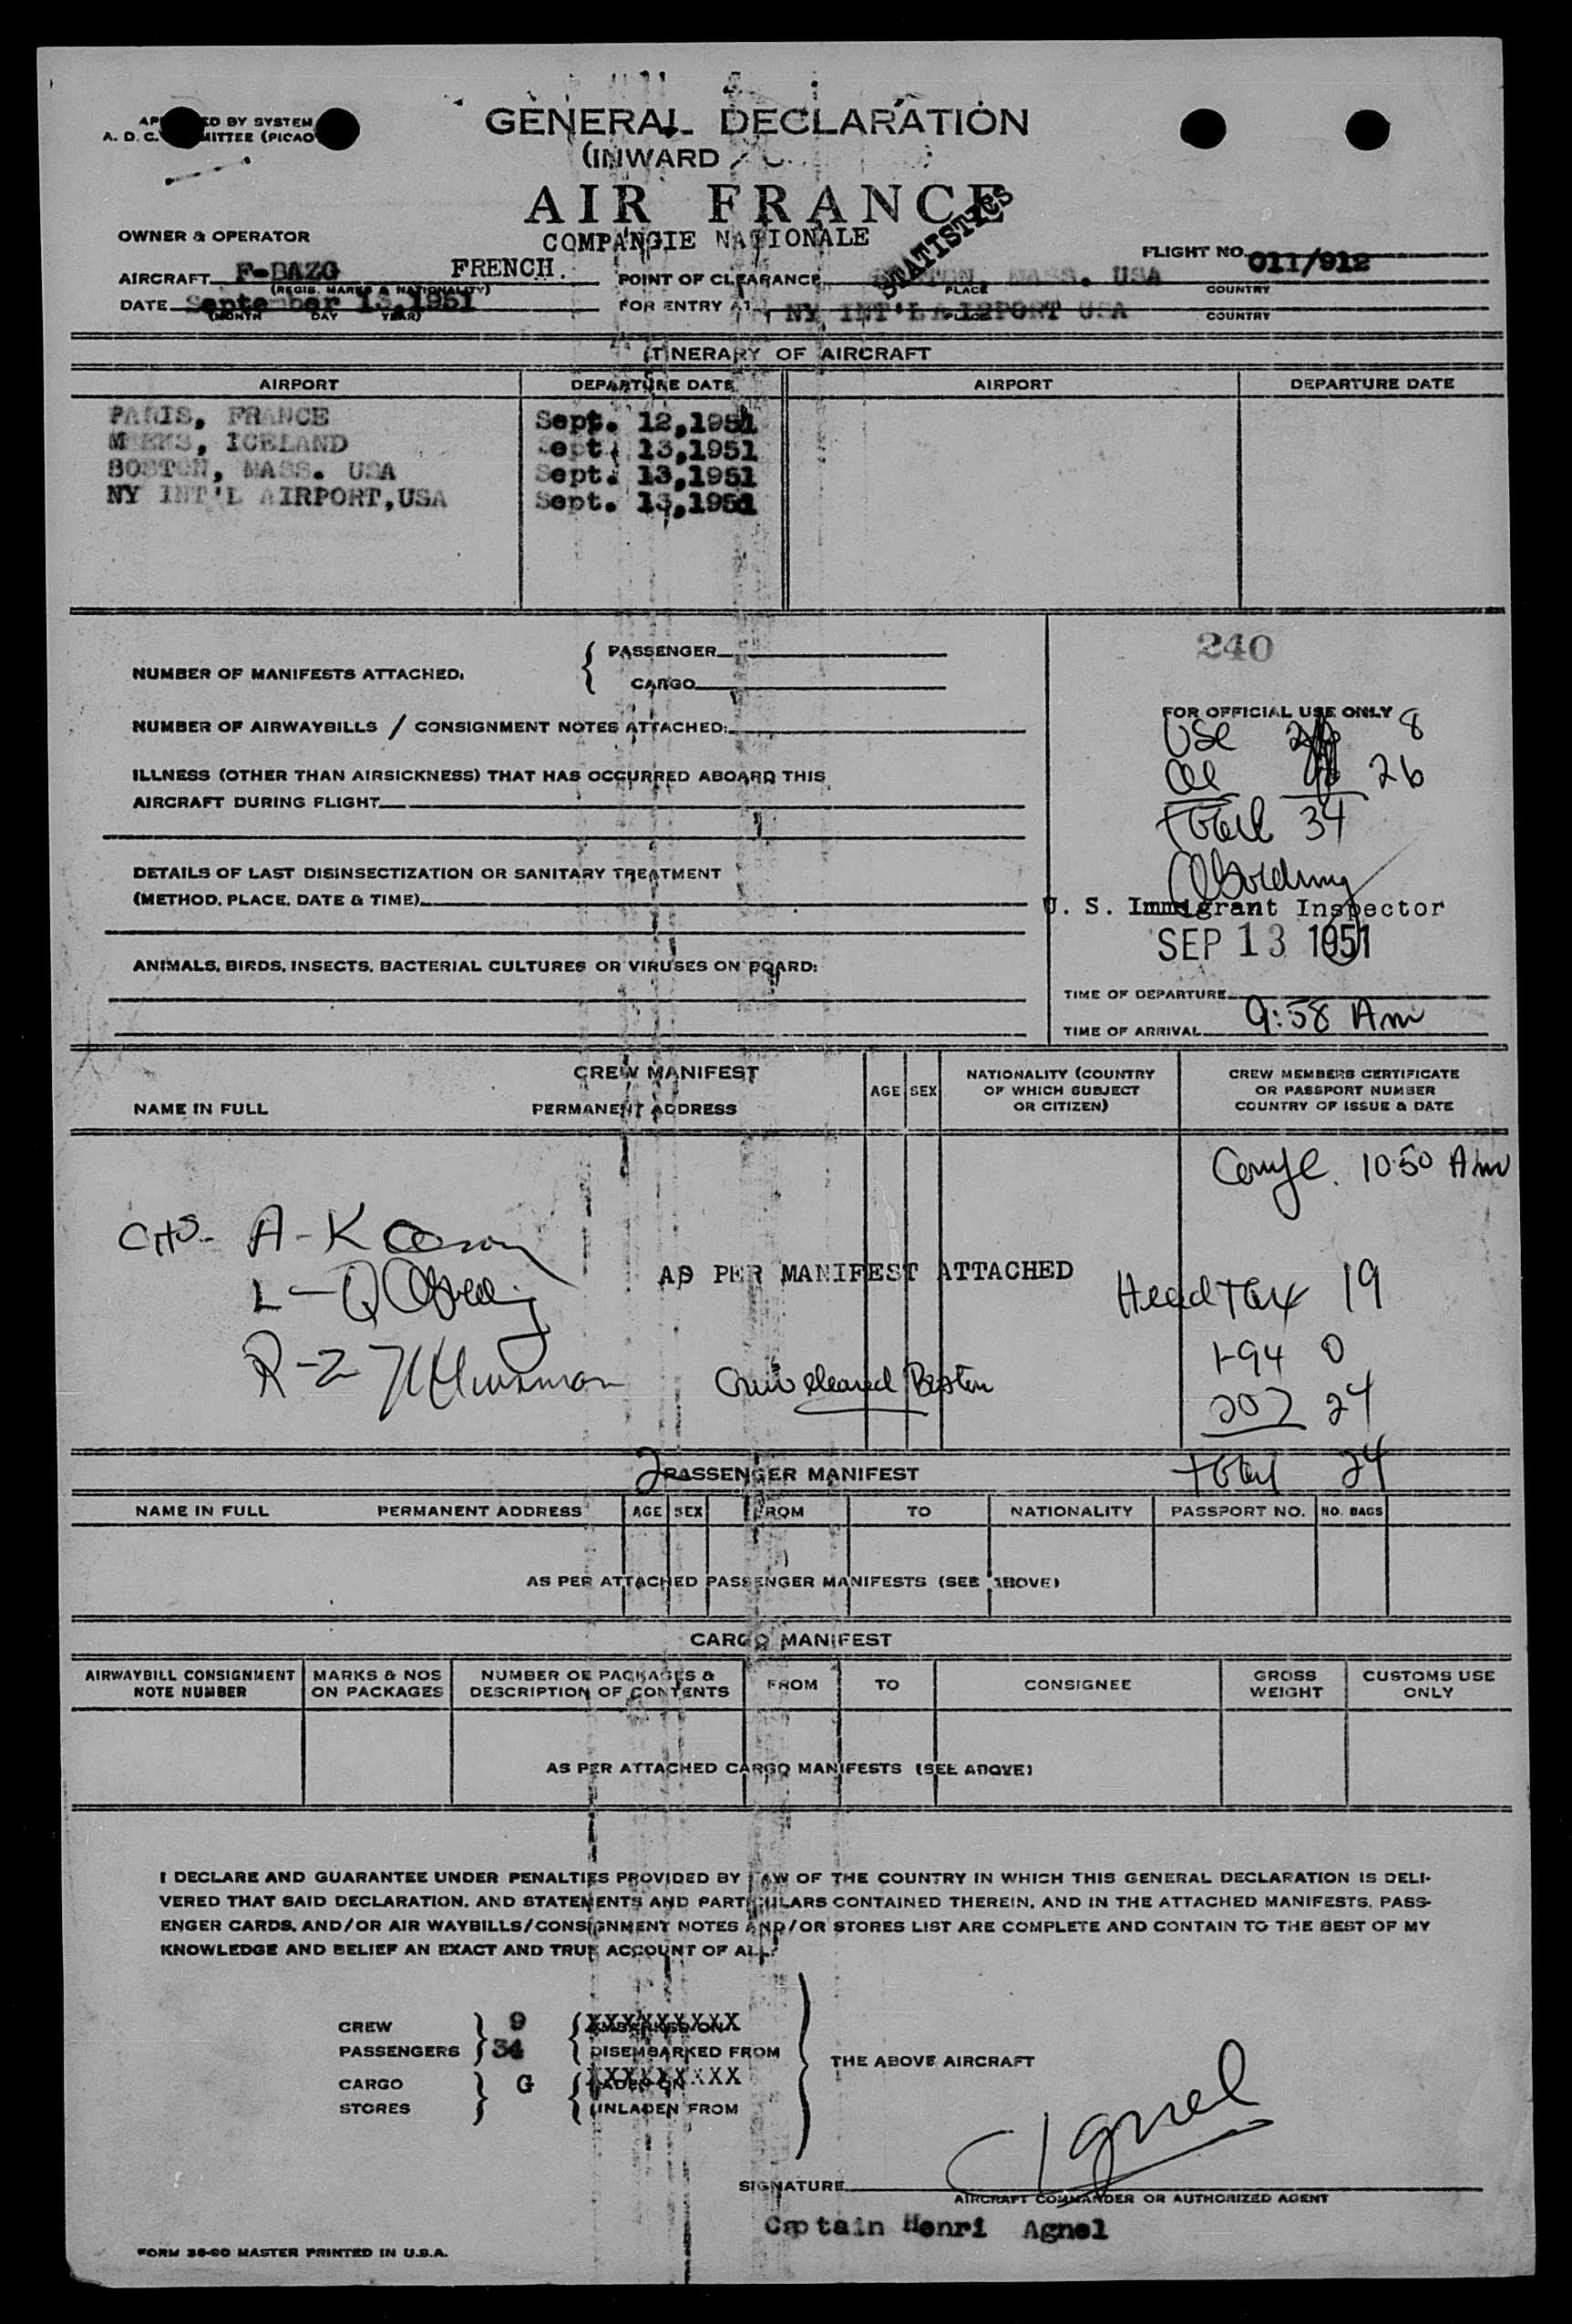 GENERAL DECLARATION
(INWARD
AIR FRANCE
COMPANGIE NATIONALE
STATISTICS
OWNER & OPERATOR
FLIGHT NO. 011/912
AIRCRAFT F-BAZG FRENCH.
(REGIS. MARKS & NATIONALITY)
POINT OF CLEARANCE MASS. USA
PLACE COUNTRY
DATE September 13, 1951
(MONTH DAY YEAR)
FOR ENTRY AT NY INT'L AIRPORT USA
COUNTRY
ITINERARY OF AIRCRAFT
AIRPORT DEPARTURE DATE AIRPORT DEPARTURE DATE
PARIS, FRANCE Sept. 12,1951
MEEKS, ICELAND Sept. 13,1951
BOSTON, MASS. USA Sept. 13,1951
NY INT'L AIRPORT,USA Sept. 13,1951
240
NUMBER OF MANIFESTS ATTACHED.
PASSENGER
CARGO
NUMBER OF AIRWAYBILLS / CONSIGNMENT NOTES ATTACHED:
ILLNESS (OTHER THAN AIRSICKNESS) THAT HAS OCCURRED ABOARD THIS
AIRCRAFT DURING FLIGHT
DETAILS OF LAST DISINSECTIZATION OR SANITARY TREATMENT
(METHOD, PLACE, DATE & TIME)
ANIMALS, BIRDS, INSECTS, BACTERIAL CULTURES OR VIRUSES ON BOARD:
FOR OFFICIAL USE ONLY
USC 8
26
Total 34
U. S. Immigrant Inspector
SEP 13 1951
TIME OF DEPARTURE
TIME OF ARRIVAL 9:58 Am
CREW MANIFEST
NAME IN FULL PERMANENT ADDRESS AGE SEX NATIONALITY (COUNTRY
OF WHICH SUBJECT
OR CITIZEN)
CREW MEMBERS CERTIFICATE
OR PASSPORT NUMBER
COUNTRY OF ISSUE & DATE
10:50 Am
A-K
AS PER MANIFEST ATTACHED
Head Tax 19
L-Q
I-94 0
R-Z
Crew cleared Boston
207 24
Total 24
2
PASSENGER MANIFEST
NAME IN FULL PERMANENT ADDRESS AGE SEX FROM TO NATIONALITY PASSPORT NO. NO. BAGS
AS PER ATTACHED PASSENGER MANIFESTS (SEE ABOVE)
CARGO MANIFEST
AIRWAYBILL CONSIGNMENT
NOTE NUMBER
MARKS & NOS
ON PACKAGES
NUMBER OF PACKAGES &
DESCRIPTION OF CONTENTS
FROM TO CONSIGNEE
GROSS
WEIGHT
CUSTOMS USE
ONLY
AS PER ATTACHED CARGO MANIFESTS (SEE ABOVE)
I DECLARE AND GUARANTEE UNDER PENALTIES PROVIDED BY LAW OF THE COUNTRY IN WHICH THIS GENERAL DECLARATION IS DELI-
VERED THAT SAID DECLARATION, AND STATEMENTS AND PARTICULARS CONTAINED THEREIN, AND IN THE ATTACHED MANIFESTS, PASS-
ENGER CARDS, AND/OR AIR WAYBILLS/CONSIGNMENT NOTES AND/OR STORES LIST ARE COMPLETE AND CONTAIN TO THE BEST OF MY
KNOWLEDGE AND BELIEF AN EXACT AND TRUE ACCOUNT OF ALL:
CREW 9 EMBARKED ON
PASSENGERS 34 DISEMBARKED FROM
THE ABOVE AIRCRAFT
CARGO G LADEN ON
STORES UNLADEN FROM
Agnel
SIGNATURE
AIRCRAFT COMMANDER OR AUTHORIZED AGENT
Captain Henri Agnel
FORM 38-GD MASTER PRINTED IN U.S.A.